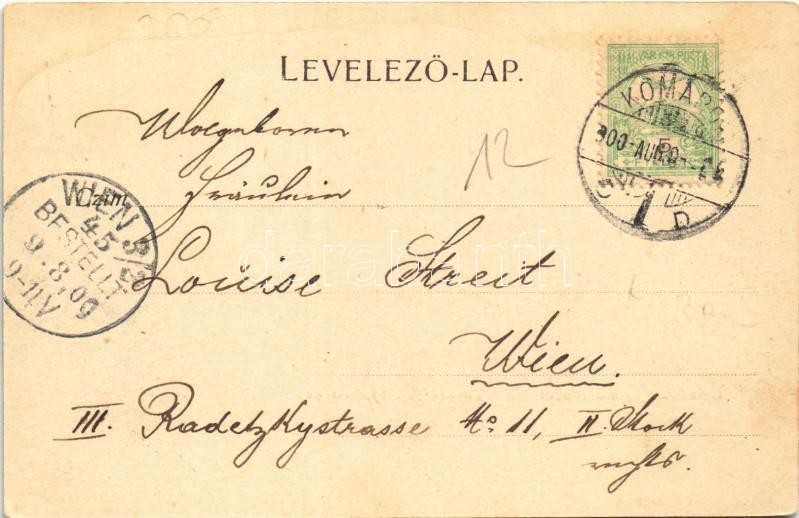 LEVELEZŐ-LAP.
MAGYAR KIR. POSTA
KOMÁR
900 AUG
D
Wolgeboren
Fräulein
Czím
WIEN 3/2
45
BESTELLT
9.8.00
9-11V
Louise Streit
Wien.
III. Radetzkystrasse No 11, II. Stock
rechts.
12
darabanth